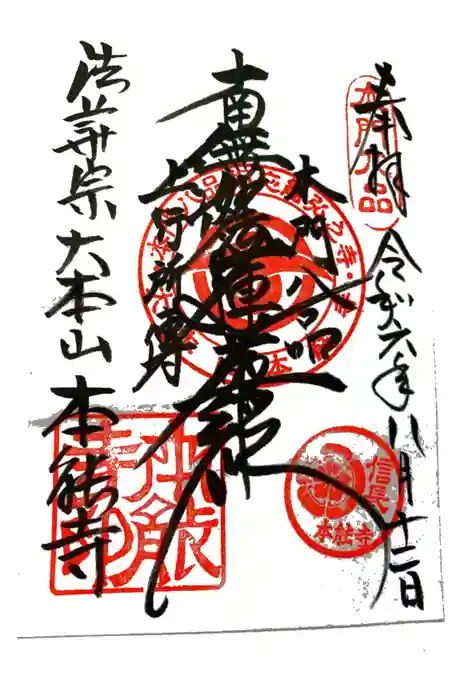 奉拝
令和六年八月十二日
本門八品
南無妙法蓮華経
上行所傳
法華宗大本山
本能寺
本門八品
信長
本能寺